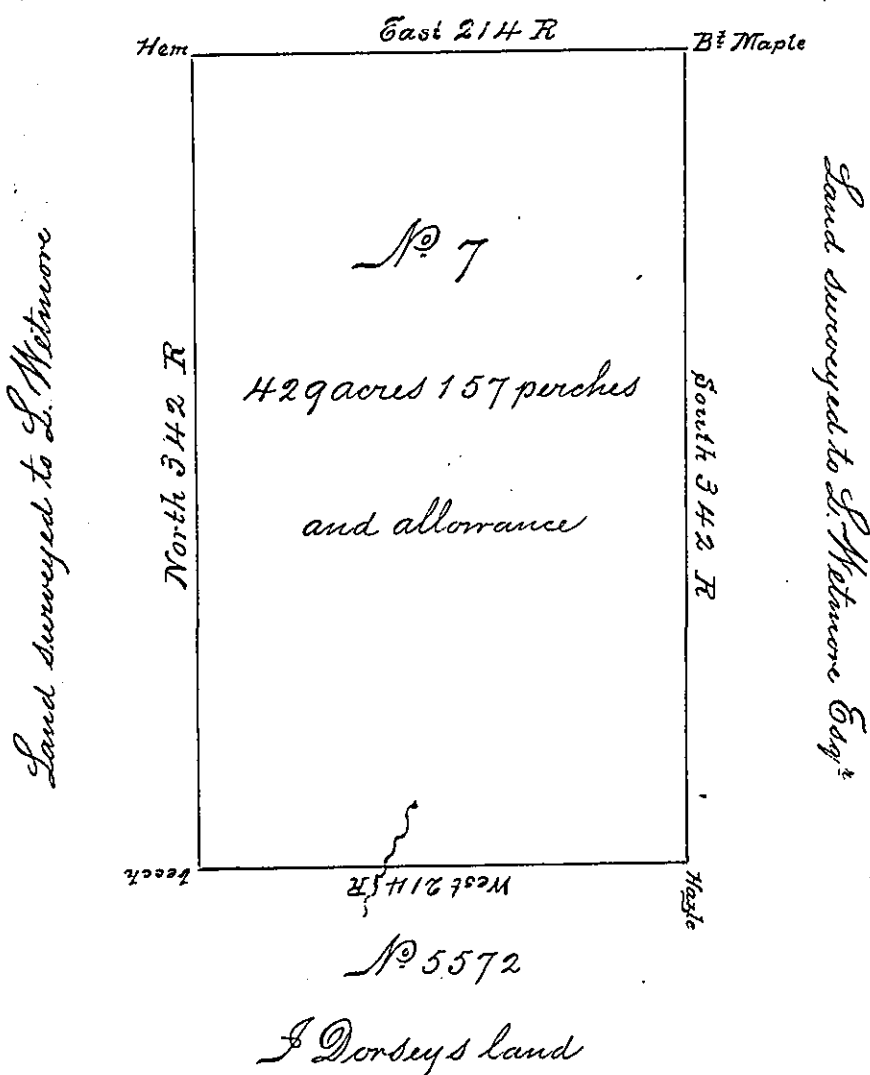 East 214 R
Hem
Bt Maple
Land surveyed to L. Wetmore
North 342 R
No 7
429 acres 157 perches
and allowance
South 342 R
Land surveyed to L. Wetmore Esqr
beech
West 214 R
Hazle
No 5572
J Dorseys land